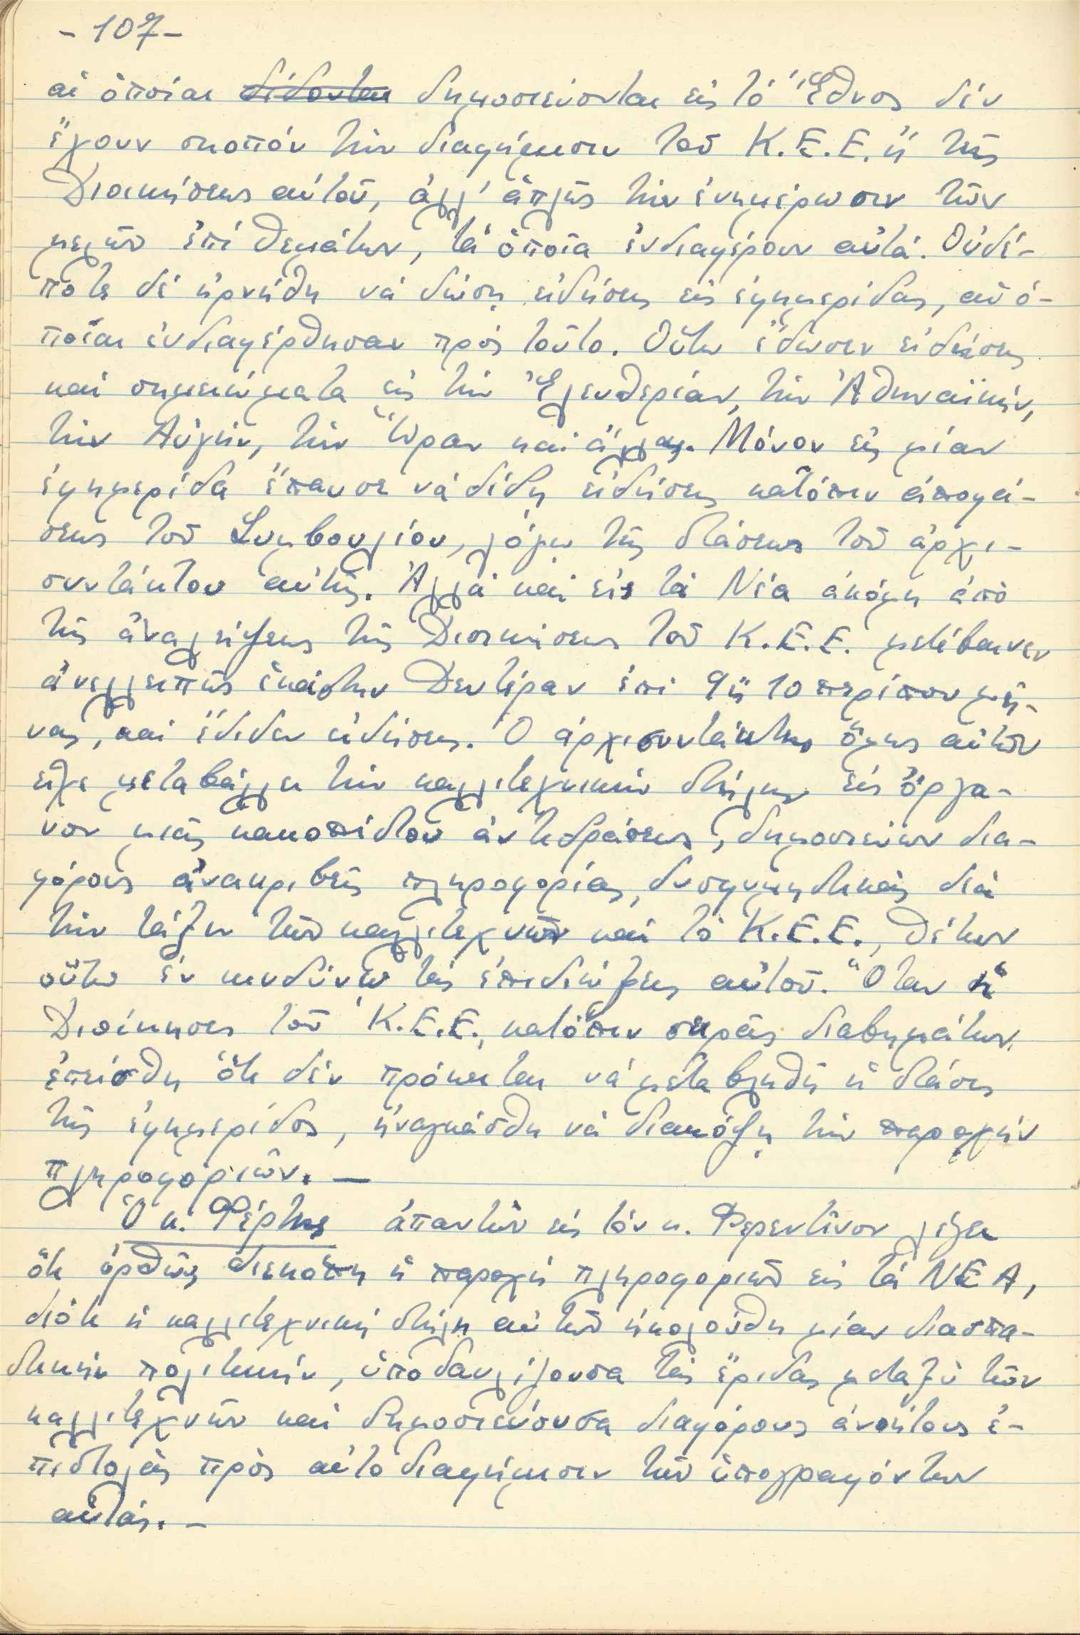 - 107 -
αἱ ὁποίαι δίδονται δημοσιεύονται εἰς τό Ἔθνος δέν
ἔχουν σκοπόν τήν διαφήμισιν τοῦ Κ.Ε.Ε. ἤ τῆς
Διοικήσεως αὐτοῦ, ἀλλ' ἁπλῶς τήν ἐνημέρωσιν τῶν
μελῶν ἐπί θεμάτων, τά ὁποῖα ἐνδιαφέρουν αὐτά. Οὐδέ-
ποτε δέ ἠρνήθη νά δώσῃ εἰδήσεις εἰς ἐφημερίδας, αἱ ὁ-
ποῖαι ἐνδιαφέρθησαν πρός τοῦτο. Οὕτω ἔδωσεν εἰδήσεις
καί σημειώματα εἰς τήν Ἐλευθερίαν, τήν Ἀθηναϊκήν,
τήν Αὐγήν, τήν Ὥραν καί ἄλλας. Μόνον εἰς μίαν
ἐφημερίδα ἔπαυσε νά δίδῃ εἰδήσεις κατόπιν ἀποφά-
σεως τοῦ Συμβουλίου, λόγω τῆς στάσεως τοῦ ἀρχι-
συντάκτου αὐτῆς. Ἀλλά καί εἰς τά Νέα ἀκόμη ἀπό
τῆς ἀναλήψεως τῆς Διοικήσεως τοῦ Κ.Ε.Ε. μετέβαινεν
ἀνελλειπῶς ἑκάστην Δευτέραν ἐπί 9 ἤ 10 περίπου μῆ-
νας, καί ἔδιδεν εἰδήσεις. Ὁ ἀρχισυντάκτης ὅμως αὐτῶν
εἶχε μεταβάλλει τήν καλλιτεχνικήν στήλην εἰς ὄργα-
νον μιᾶς κακοπίστου ἀντιδράσεως, δημοσιεύων δια-
φόρους ἀνακριβεῖς πληροφορίας, δυσφημιστικάς διά
τήν τάξιν τῶν καλλιτεχνῶν καί τό Κ.Ε.Ε., θέτων
οὕτω ἐν κινδύνω τάς ἐπιδιώξεις αὐτοῦ. Ὅταν ἡ
Διοίκησις τοῦ Κ.Ε.Ε., κατόπιν σειρᾶς διαβημάτων,
ἐπείσθη ὅτι δέν πρόκειται νά μεταβληθῆ ἡ στάσις
τῆς ἐφημερίδος, ἠναγκάσθη νά διακόψη τήν παροχήν
πληροφοριῶν. —
Ὁ κ. Φέρτης ἀπαντῶν εἰς τόν κ. Φερεντῖνον λέγει
ὅτι ὀρθῶς διεκόπη ἡ παροχή πληροφοριῶν εἰς τά ΝΕΑ,
διότι ἡ καλλιτεχνική στήλη αὐτῶν ἠκολούθη μίαν διασπα-
στικήν πολιτικήν, ὑποδαυλίζουσα τάς ἔριδας μεταξύ τῶν
καλλιτεχνῶν καί δημοσιεύουσα διαφόρους ἀνοήτους ἐ-
πιστολάς πρός αὐτοδιαφήμισιν τῶν ὑπογραφόντων
αὐτάς. —